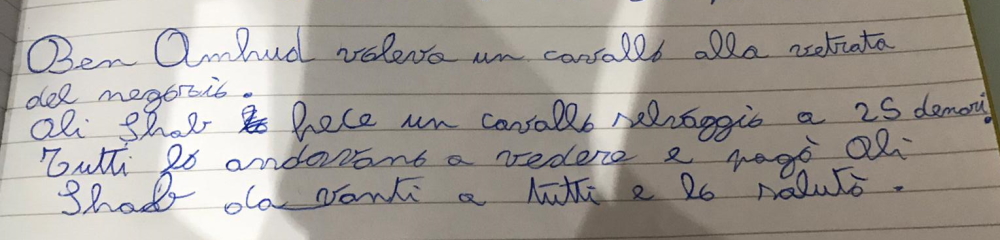 Ben Amhud voleva un cavallo alla vetrata
del negozio.
Ali Shab fece un cavallo selvaggio a 25 denari.
Tutti lo andavano a vedere e pagò Ali
Shab da vanti a tutti e lo salutò.